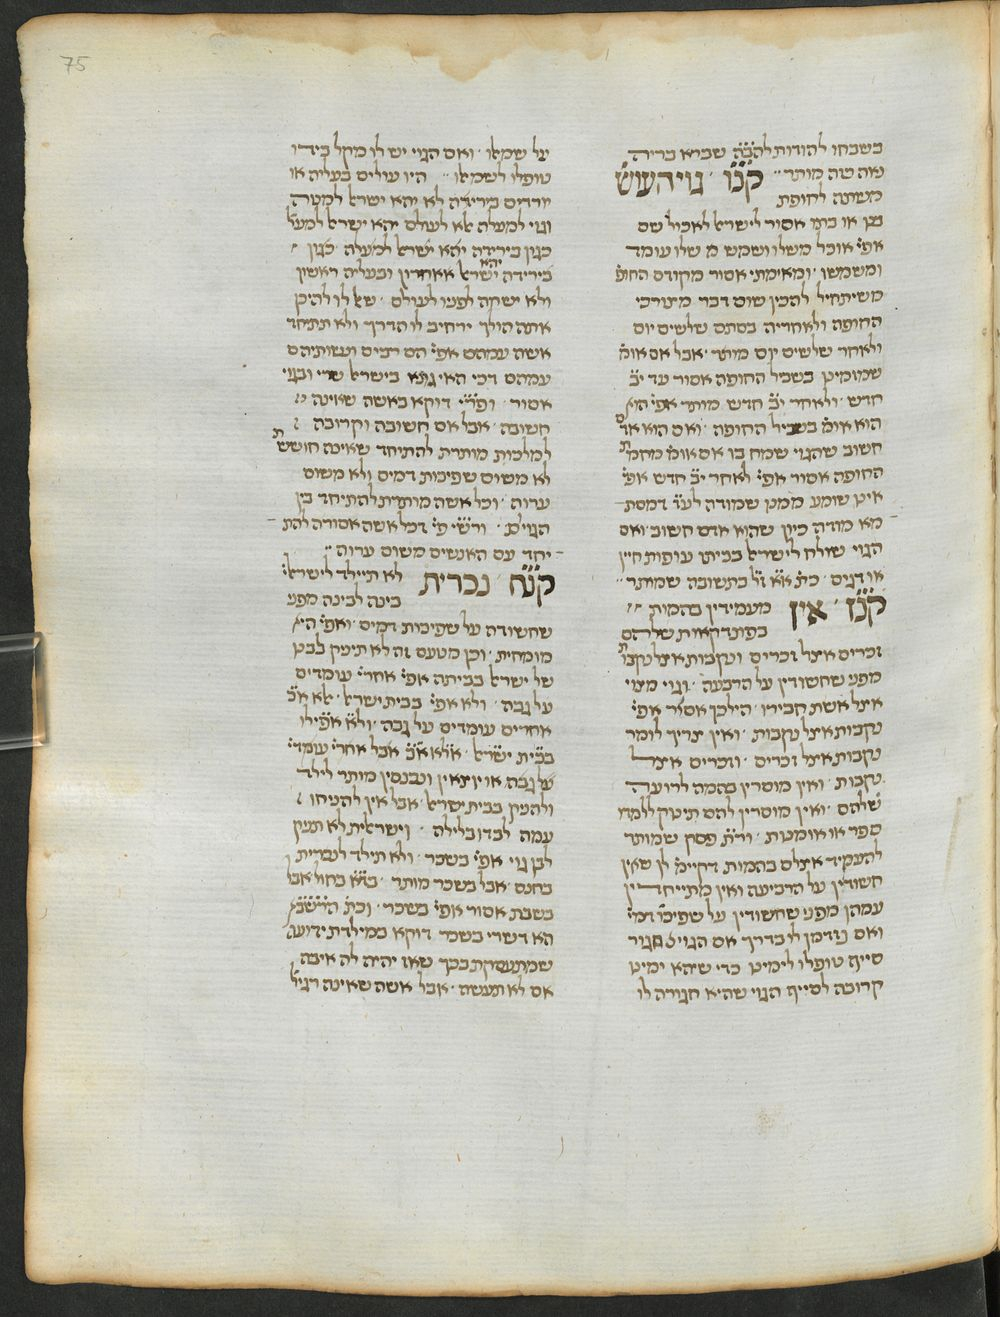 75
בשבחו להודות להב״ה שברא בריה
נאה טה מותר ׃
קנ״ו גוי העוש׳
משתה לחופת
בנו או בתו אסור לישראל לאכול שם
אפי׳ אוכל משלו ושמש משלו עומד
ומשמשו ׳ ומאימתי אסור מקודם החופ׳
משיתחיל להכין שום דבר מצורכי
החופה ולאחריה בסתם שלשים יום
ולאחר שלשים יום מותר ׳ אבל אם אומ׳
שמזמינו בשביל החופה אסור עד י״ב
חדש ׳ ולאחר י״ב חדש מותר אפי׳ הוא
הוא אומ׳ בשביל החופה ׳ ואם הוא אדם
חשוב שהגוי שמח בו אם אומ׳ מחמת
החופה אסור אפי׳ לאחר י״ב חדש אפי׳
אינו שומע ממנו שמודה לע״ז דמסת־
מא מודה כיון שהוא אדם חשוב ׳ ואם
הגוי שולח לישראל בביתו עופות חיין
או דגים ׳ כת׳ א״א ז״ל בתשובה שמותר ׃
קנ״ז ׳ אין מעמידין בהמות
בפונדקאות שלהם
זכרים אצל זכרים ונקבות אצל נקבות
מפני שחשודין על הרביעה ׳ וגוי מצוי
אצל אשת חבירו ׳ הילכך אסור אפי׳
נקבות אצל נקבות ׳ ואין צריך לומר
נקבות אצל זכרים ׳ וזכרים אצל
נקבות ׳ ואין מוסרין בהמה לרועה
שלהם ׳ ואין מוסרין להם תינוק ללמדו
ספר או אומנות ׳ ור״ת פסק שמותר
להעמיד אצלם בהמות דקיימ׳ לן שאין
חשודין על הרביעה ואין מתייחדין
עמהן מפני שחשודין על שפיכו׳ דמי׳
ואם נזדמן לו בדרך אם הגוי חגור
סייף טופלו לימינו כדי שיהא ימינו
קרובה לסייף הגוי שהיא חגורה לו
על שמאלו ׳ ואם הגוי יש לו מקל בידו
טופלו לשמאלו ׃ היו עולים בעליה או
יורדים בירידה לא יהא ישראל למטה
וגוי למעלה אלא לעולם יהא ישראל למעל׳
כגון בירידה יהא ישראל למעלה ׳ כגון
בירידה יהא ישראל אאחרון ובעליה ראשון
ולא ישחה לפניו לעולם ׳ שאל לו להיכן
אתה הולך ירחיב לו הדרך ולא תתיחד
אשה עמהם אפי׳ הם רבים ונשותיהם
עמהם דכי האי גוונא בישראל שרי ובגוי
אסור ׳ ופר״י דוקא באשה שאינה
חשובה ׳ אבל אם חשובה וקרובה
למלכות מותרת להתיחד שאינה חוששת
לא משום שפיכות דמים ולא משום
ערוה ׳ וכל אשה מותרת להתיחד בין
הגוים ׳ ורש״י פי׳ דכל אשה אסורה להת־
יחד עם האנשים משום ערוה ׃
קנ״ח ׳ נכרית לא תיילד לישראל׳
בינה לבינה מפני
שחשודה על שפיכות דמים ׳ ואפי׳ היא
מומחית ׳ וכן מטעם זה לא תניק לבנו
של ישראל בביתה אפי׳ אחרי׳ עומדים
על גבה ׳ ולא אפי׳ בבית ישראל ׳ אלא א״כ
אחרים עומדים על גבה ׳ ולא אפילו
בבית ישראל ׳ אלא א״כ אבל אחרי׳ עומדי׳
על גבה או יוצאין ונכנסין מותר לילד
ולהניק בבית ישראל אבל אין להניחו
עמה לבדו בלילה ׳ וישראלית לא תניק
לבן גוי אפי׳ בשכר ׳ ולא תילד לנכרית
בחנם ׳ אבל בשכר מותר ׳ בד״א בחול אבל
בשבת אסור אפי׳ בשכר ׳ וכת׳ הרשב״א
הא דשרי בשכר דוקא במילדת ידועה
שמתעסקת בכך שאז יהיה לה איבה
אם לא תעשה ׳ אבל אשה שאינה רגיל׳